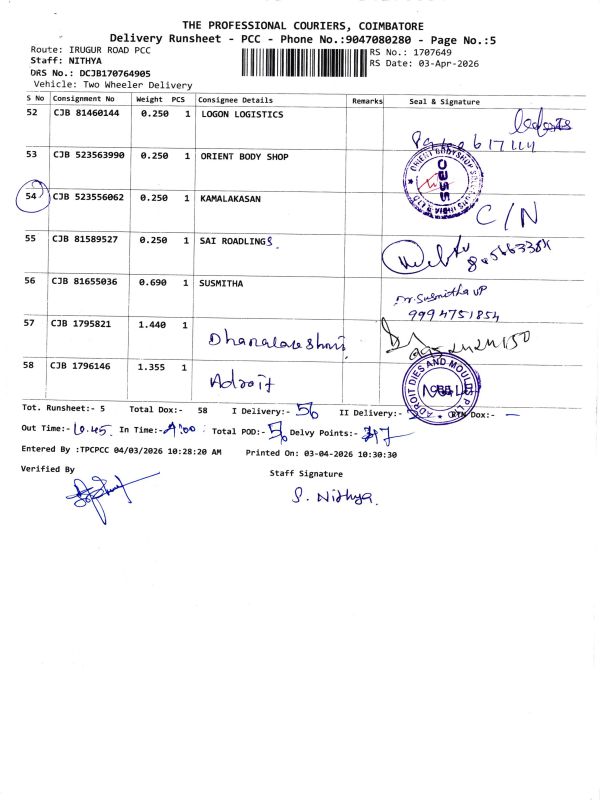 THE PROFESSIONAL COURIERS, COIMBATORE
Delivery Runsheet - PCC - Phone No.:9047080280 - Page No.:5
Route: IRUGUR ROAD PCC
Staff: NITHYA
DRS No.: DCJB170764905
Vehicle: Two Wheeler Delivery
RS No.: 1707649
RS Date: 03-Apr-2026
S No Consignment No Weight PCS Consignee Details Remarks Seal & Signature
52 CJB 81460144 0.250 1 LOGON LOGISTICS
53 CJB 523563990 0.250 1 ORIENT BODY SHOP
54 CJB 523556062 0.250 1 KAMALAKASAN C/N
55 CJB 81589527 0.250 1 SAI ROADLINGS.
56 CJB 81655036 0.690 1 SUSMITHA Susmitha VP
9994751854
57 CJB 1795821 1.440 1
58 CJB 1796146 1.355 1 Adroit ADROIT DIES AND MOULDS
Tot. Runsheet:- 5 Total Dox:- 58 I Delivery:- 56 II Delivery:- RTN Dox:- —
Out Time:- 10.45. In Time:- 4:00 Total POD:- 56 Delvy Points:-
Entered By :TPCPCC 04/03/2026 10:28:20 AM Printed On: 03-04-2026 10:30:30
Verified By
Staff Signature
S. Nithya.